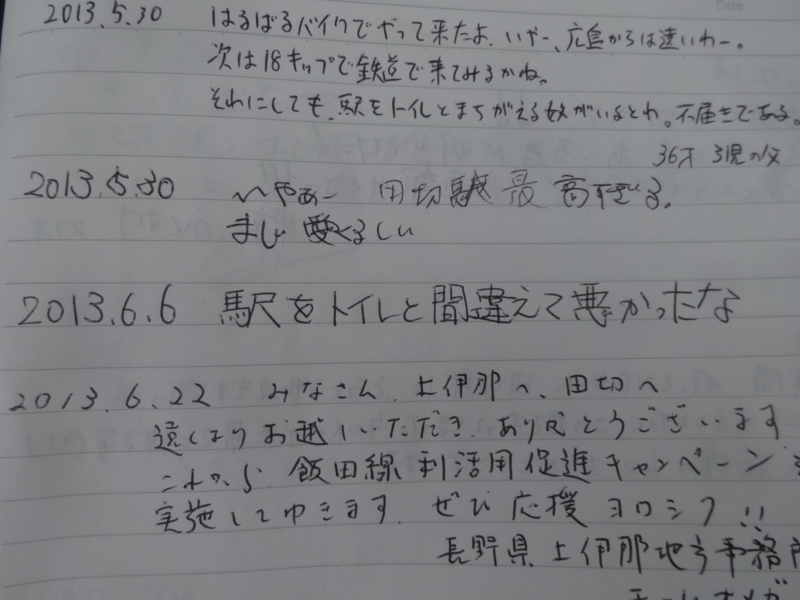 2013.5.30 はるばるバイクでやって来たよ、いやー、広島からは遠いわー。
次は18キップで鉄道で来てみるかね。
それにしても、駅をトイレとまちがえる奴がいるとわ。不届きである。
36才 3児の父
2013.5.30 いやぁー 田切駅 最高すぎる。
まじ 愛くるしい
2013.6.6 駅をトイレと間違えて悪かったな
2013.6.22 みなさん、上伊那へ、田切へ
遠くよりお越しいただき、ありがとうございます
これから 飯田線利活用促進キャンペーンを
実施してゆきます。ぜひ 応援 ヨロシク!!
長野県上伊那地方事務所